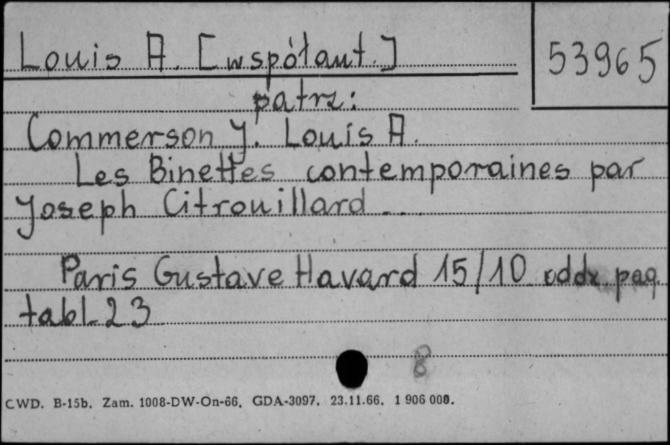 Louis A. [współaut.]
53965
patrz:
Commerson J. Louis A.
Les Binettes contemporaines par
Joseph Citrouillard ...
Paris Gustave Havard 15/10 oddz. pag.
tabl. 23
8
CWD. B-15b. Zam. 1008-DW-On-66. GDA-3097. 23.11.66. 1 906 000.